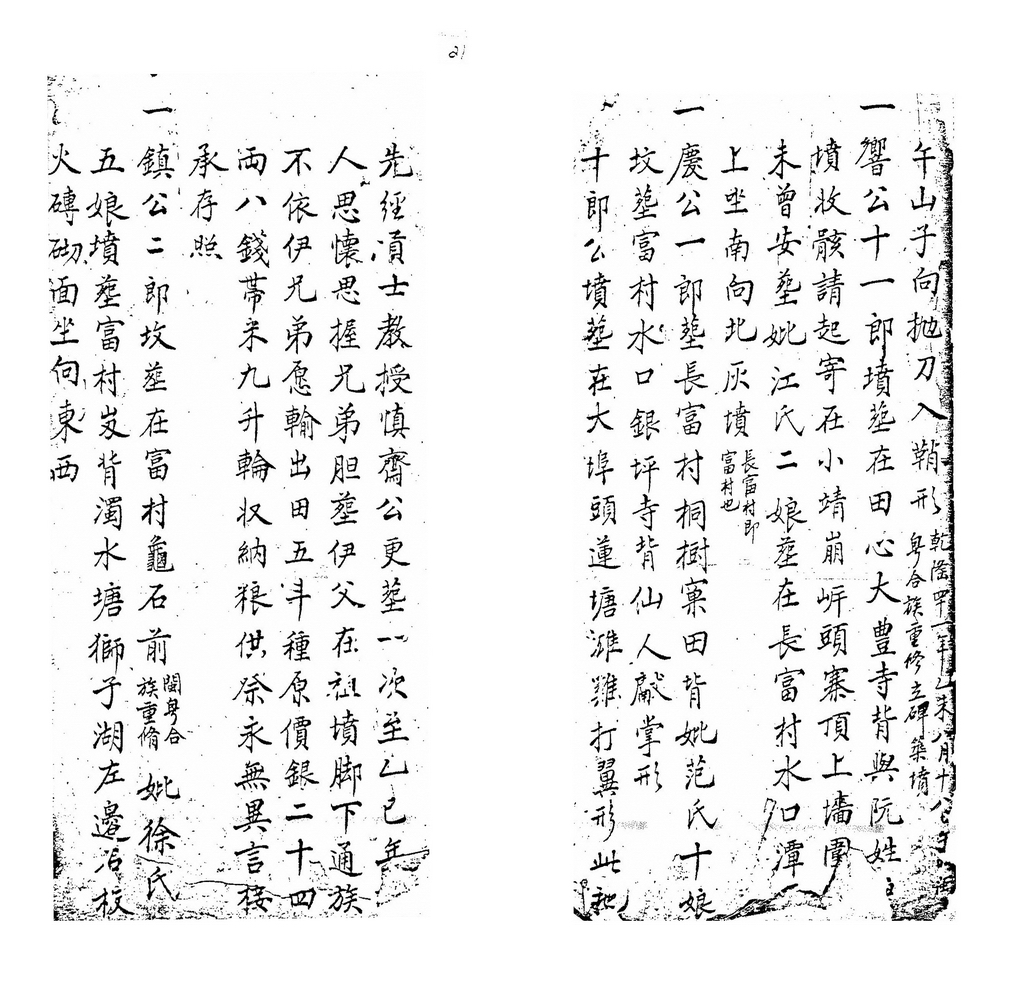 21
午山子向抛刀入鞘形 乾隆四十年乙未八月十八
粤合族重修立碑築墳
一響公十一郎墳塟在田心大豊寺背與阮姓
墳收骸請起寄在小靖崩岍頭寨頂上墻圍
未曾安塟妣江氏二娘塟在長富村水口潭
上坐南向北灰墳 長富村即
富村也
一慶公一郎塟長富村桐樹窠田背妣范氏十娘
坟塟富村水口銀坪寺背仙人獻掌形
十郎公墳塟在大埠頭蓮塘雄雞打翼形此
先經貢士教授慎齋公更塟一次至乙巳年
人思懷思握兄弟胆塟伊父在祖墳脚下通族
不依伊兄弟愿輸出田五斗種原價銀二十四
両八錢帶米九升輪収納粮供祭永無異言接
承存照
一鎮公二郎坟塟在富村龜石前 閩粤合
族重脩 妣徐氏
五娘墳塟富村岌背濁水塘獅子湖左邉
火磚砌面坐向東西